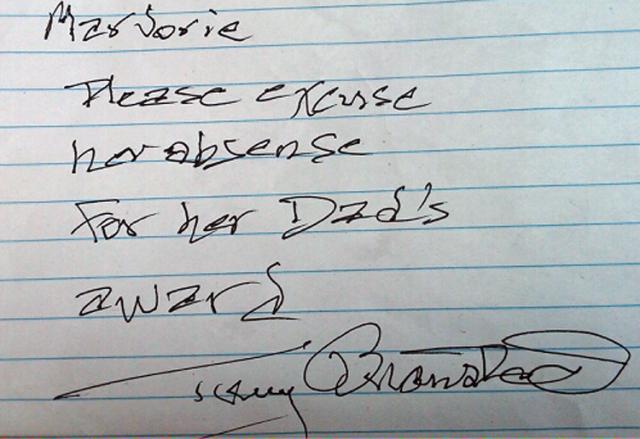 Marjorie
Please excuse
her absense
For her Dad's
award